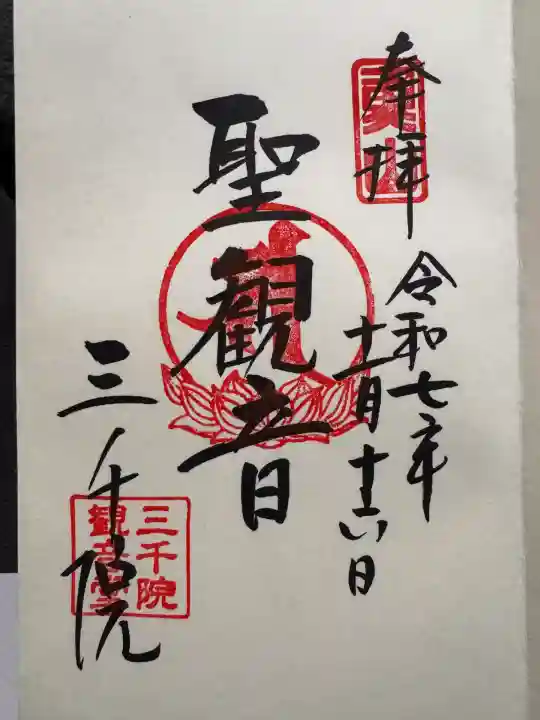 奉拝
令和七年
十一月十六日
聖観音
三千院
三千院
観音堂